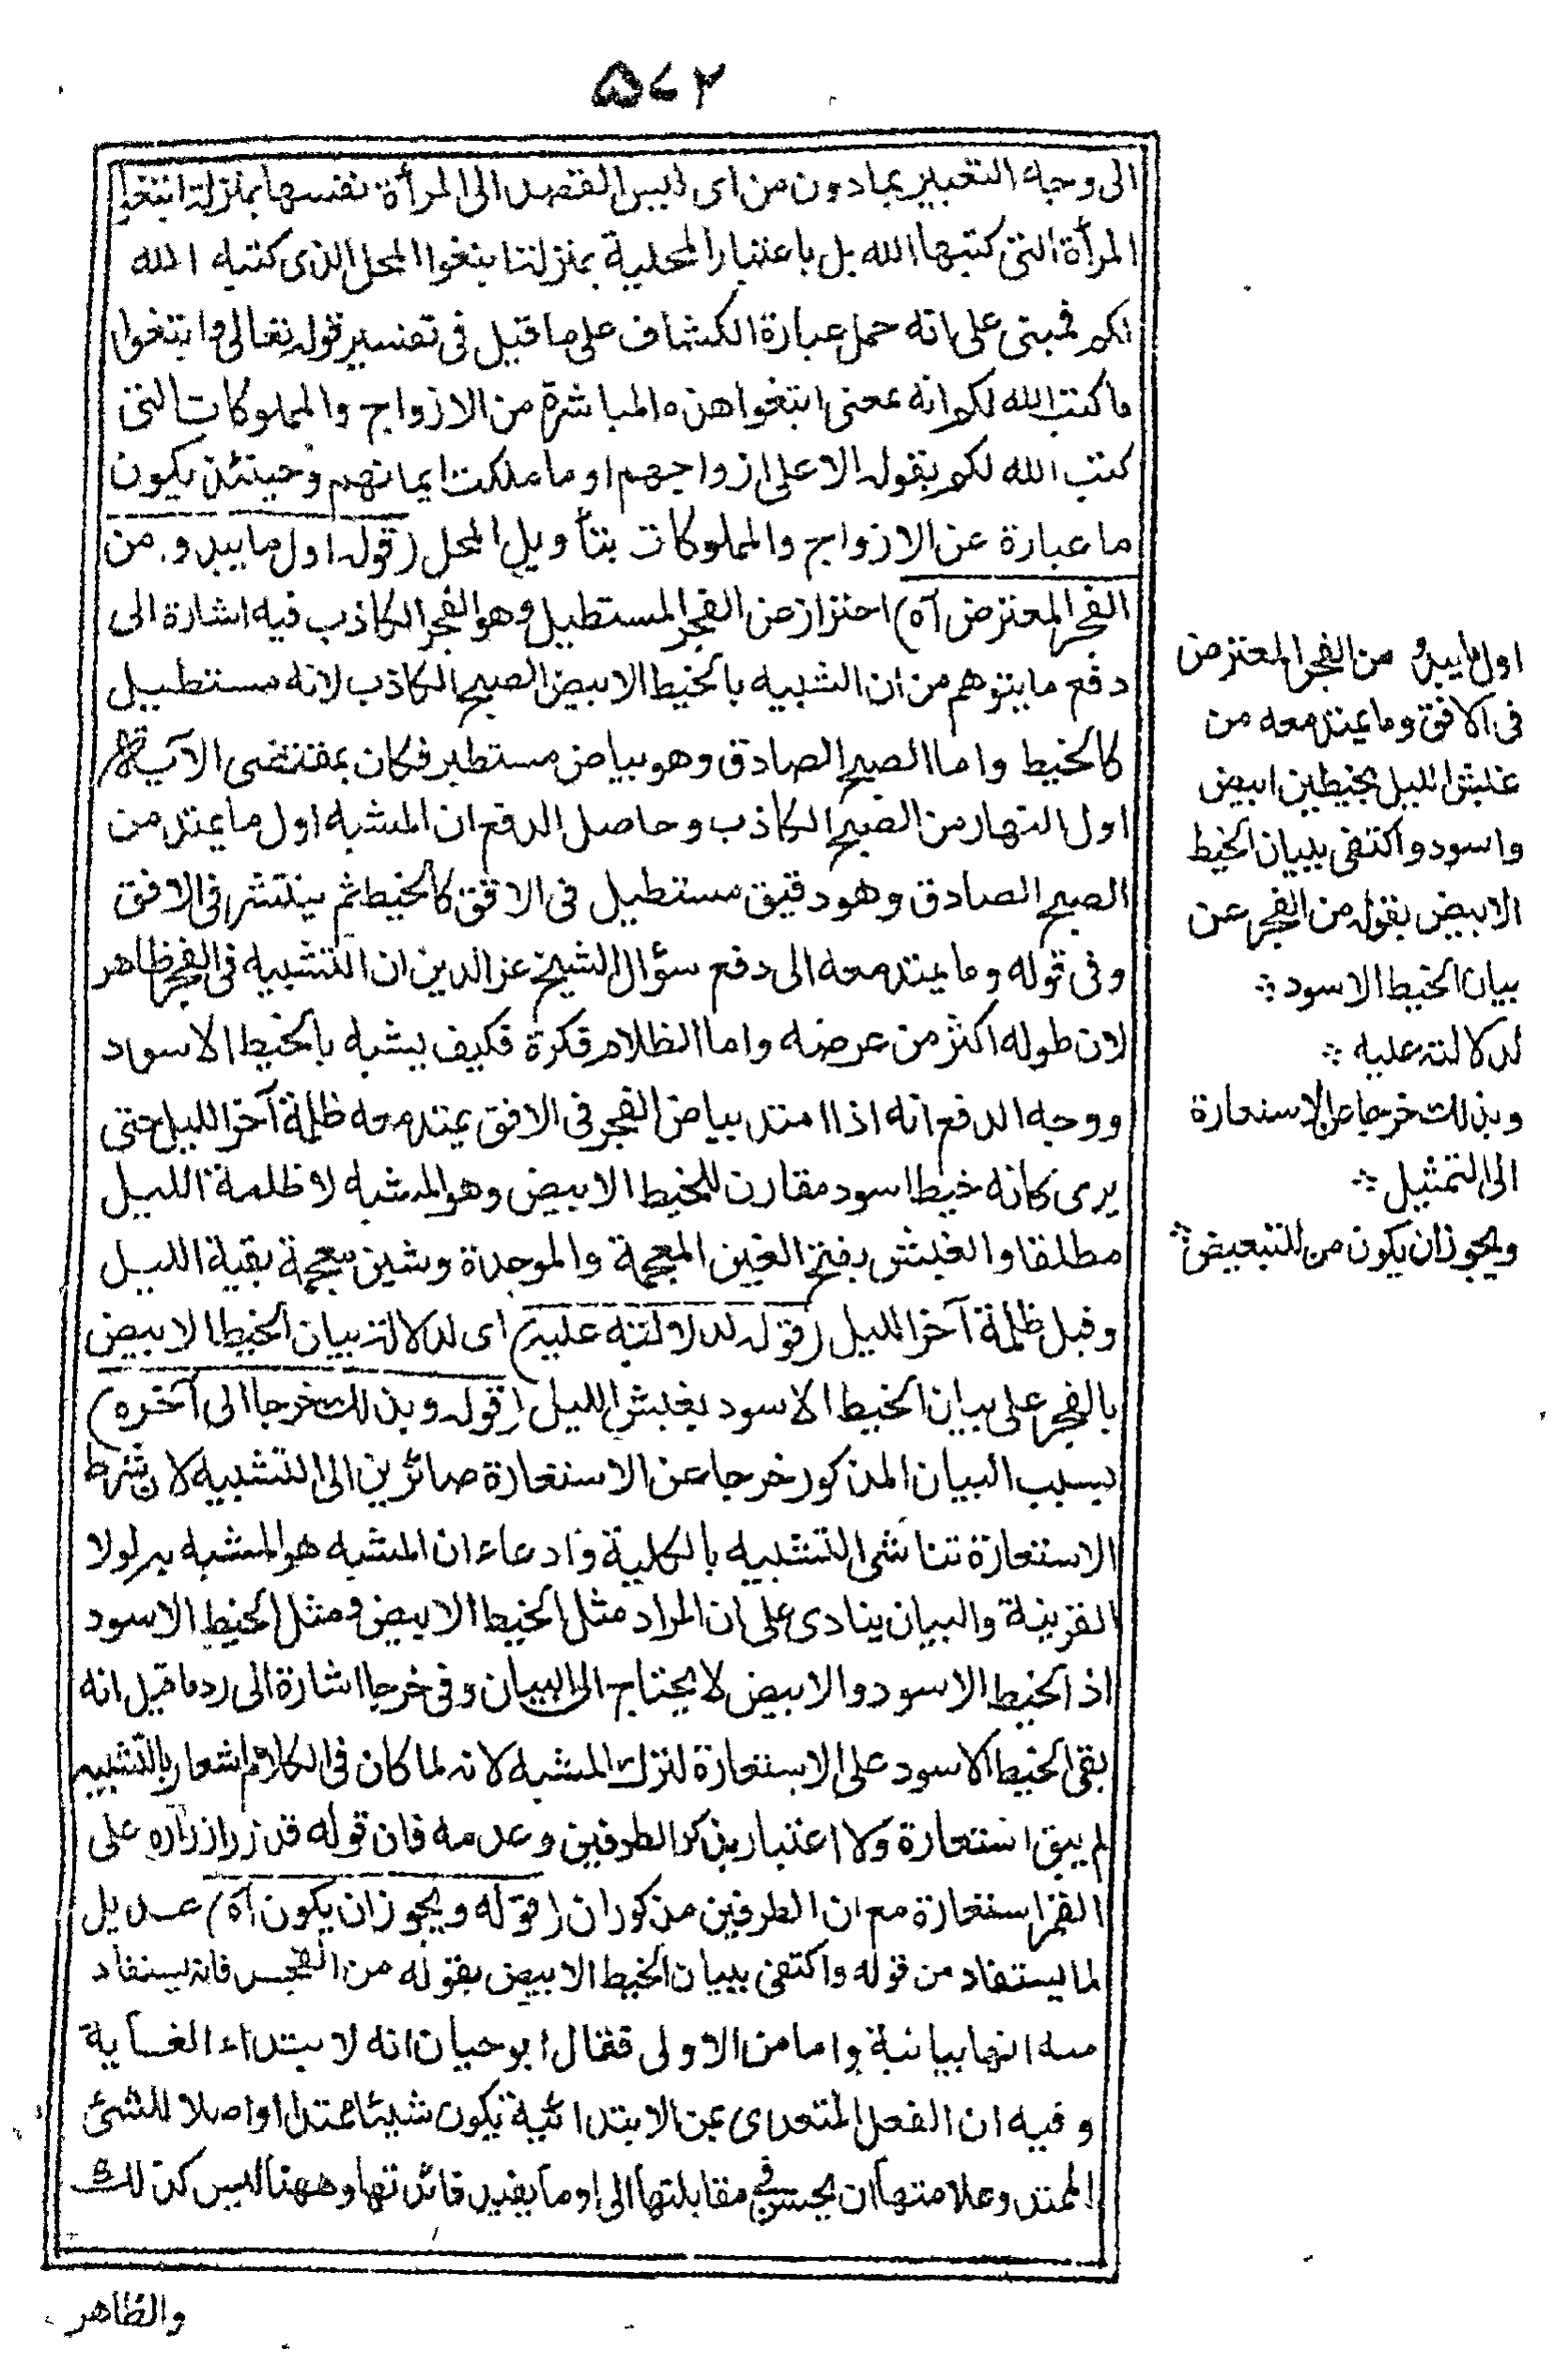 ٥٧٢
الى وجه التعبير بما دون من اى ليس القصد الى المرأة نفسها بمنزلة ابتغوا
المرأة التى كتبها الله بل باعتبار المحلية بمنزلة ابتغوا المحل الذى كتبه الله
لكم فمبنى على انه حمل عبارة الكشاف على ما قيل فى تفسير قوله تعالى وابتغوا
ما كتب الله لكم انه بمعنى ابتغوا هذه المباشرة من الازواج والمملوكات التى
كتب الله لكم بقوله الا على ازواجهم او ما ملكت ايمانهم وحينئذ يكون
ما عبارة عن الازواج والمملوكات بتأويل المحل (قوله اول ما يبدو من
الفجر المعترض آه) احتراز عن الفجر المستطيل وهو الفجر الكاذب فيه اشارة الى
دفع ما يتوهم من ان الشبيه بالخيط الابيض الصبح الكاذب لانه مستطيل
كالخيط واما الصبح الصادق وهو بياض مستطير فكان بمقتضى الآية
اول النهار من الصبح الكاذب وحاصل الدفع ان المشبه اول ما يمتد من
الصبح الصادق وهو دقيق مستطيل فى الافق كالخيط ثم ينتشر فى الافق
وفى قوله وما يمتد معه الى دفع سؤال الشيخ عز الدين ان التشبيه فى الفجر ظاهر
لان طوله اكثر من عرضه واما الظلام فكرة فكيف يشبه بالخيط الاسود
ووجه الدفع انه اذا امتد بياض الفجر فى الافق يمتد معه ظلمة آخر الليل حتى
يرى كانه خيط اسود مقارن للخيط الابيض وهو المشبه لا ظلمة الليل
مطلقا والغبش بفتح الغين المعجمة والموحدة وشين معجمة بقية الليل
وقيل ظلمة آخر الليل (قوله لدلالته عليه) اى لدلالة بيان الخيط الابيض
بالفجر على بيان الخيط الاسود بغبش الليل (قوله وبذلك خرجا الى آخره)
بسبب البيان المذكور خرجا عن الاستعارة صائرين الى التشبيه لان شرط
الاستعارة تناسى التشبيه بالكلية وادعاء ان المشبه هو المشبه به لولا
القرينة والبيان ينادى على ان المراد مثل الخيط الابيض ومثل الخيط الاسود
اذ الخيط الاسود والابيض لا يحتاج الى البيان وفى خرجا اشارة الى رد ما قيل انه
بقى الخيط الاسود على الاستعارة لترك المشبه لانه لما كان فى الكلام اشعار بالتشبيه
لم يبق استعارة ولا اعتبار بذكر الطرفين وعدمه فان قوله قد زر ازراره على
القمر استعارة مع ان الطرفين مذكوران (قوله ويجوز ان يكون آه) عديل
لما يستفاد من قوله واكتفى ببيان الخيط الابيض بقوله من الفجر فانه يستفاد
منه انها بيانية واما من الاولى فقال ابو حيان انه لابتداء الغاية
وفيه ان الفعل المتعدى بمن الابتدائية يكون شيئا ممتدا او اصلا للشئ
الممتد وعلامتها ان يحسن فى مقابلتها الى او ما يفيد فائدتها وههنا ليس كذلك
والظاهر
اول ما يبدو من الفجر المعترض
فى الافق وما يمتد معه من
غبش الليل بخيطين ابيض
واسود واكتفى ببيان الخيط
الابيض بقوله من الفجر عن
بيان الخيط الاسود ∴
لدلالته عليه ∴
وبذلك خرجا عن الاستعارة
الى التمثيل ∴
ويجوز ان يكون من للتبعيض ∴